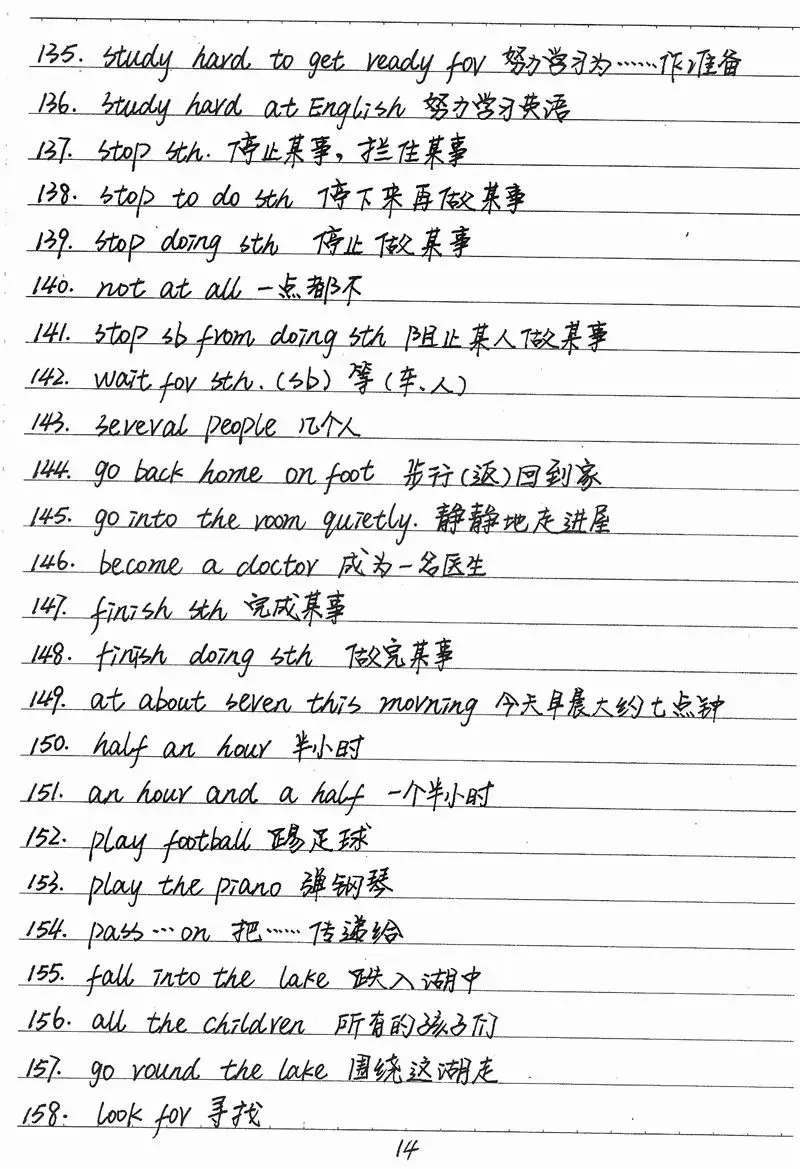 135. study hard to get ready for 努力学习为……作准备
136. study hard at English 努力学习英语
137. stop sth. 停止某事，拦住某事
138. stop to do sth 停下来再做某事
139. stop doing sth 停止做某事
140. not at all 一点都不
141. stop sb from doing sth 阻止某人做某事
142. wait for sth. (sb) 等(车、人)
143. several people 几个人
144. go back home on foot 步行(返)回到家
145. go into the room quietly. 静静地走进屋
146. become a doctor 成为一名医生
147. finish sth 完成某事
148. finish doing sth 做完某事
149. at about seven this morning 今天早晨大约七点钟
150. half an hour 半小时
151. an hour and a half 一个半小时
152. play football 踢足球
153. play the piano 弹钢琴
154. pass…on 把……传递给
155. fall into the lake 跌入湖中
156. all the children 所有的孩子们
157. go round the lake 围绕这湖走
158. look for 寻找
14